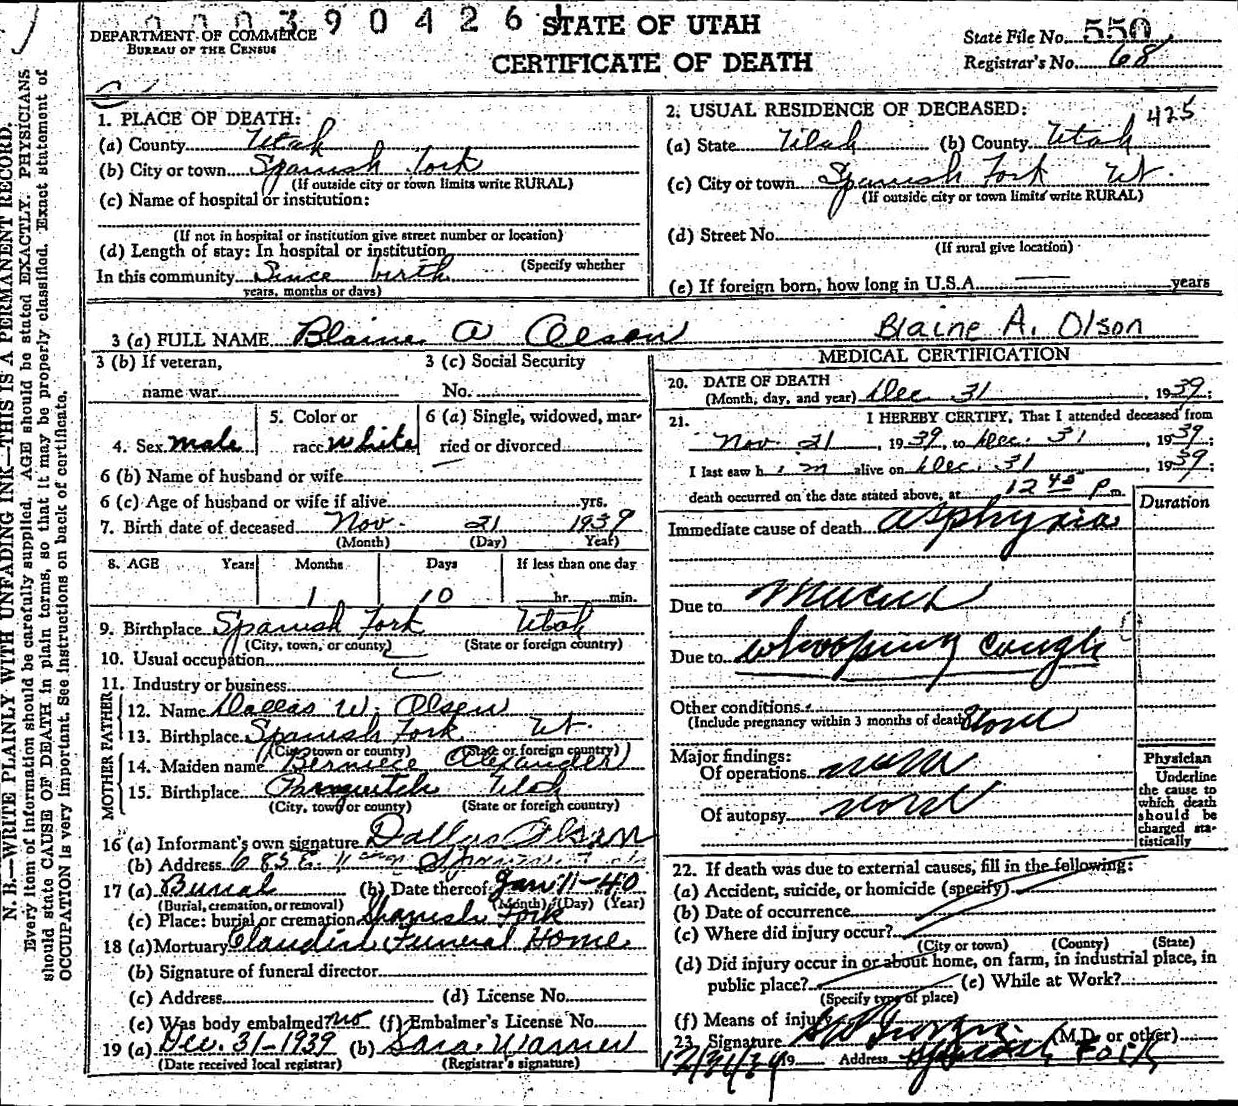 0 0 0 0 3 9 0 4 2 6 1
STATE OF UTAH
CERTIFICATE OF DEATH
DEPARTMENT OF COMMERCE
BUREAU OF THE CENSUS
State File No. 550
Registrar's No. 68
N. B.—WRITE PLAINLY WITH UNFADING INK—THIS IS A PERMANENT RECORD.
Every item of information should be carefully supplied. AGE should be stated EXACTLY. PHYSICIANS
should state CAUSE OF DEATH in plain terms, so that it may be properly classified. Exact statement of
OCCUPATION is very important. See instructions on back of certificate.
1. PLACE OF DEATH:
(a) County Utah
(b) City or town Spanish Fork
(If outside city or town limits write RURAL)
(c) Name of hospital or institution:
(If not in hospital or institution give street number or location)
(d) Length of stay: In hospital or institution
(Specify whether
In this community Since birth
years, months or days)
2. USUAL RESIDENCE OF DECEASED: 425
(a) State Utah (b) County Utah
(c) City or town Spanish Fork Ut.
(If outside city or town limits write RURAL)
(d) Street No.
(If rural give location)
(e) If foreign born, how long in U.S.A. years
3 (a) FULL NAME Blaine A Olson Blaine A. Olson
3 (b) If veteran, name war
3 (c) Social Security No.
4. Sex male
5. Color or race white
6 (a) Single, widowed, married or divorced
6 (b) Name of husband or wife
6 (c) Age of husband or wife if alive yrs.
7. Birth date of deceased Nov. 21 1939
(Month) (Day) Year)
8. AGE Years Months Days If less than one day
1 10 hr. min.
9. Birthplace Spanish Fork Utah
(City, town, or county) (State or foreign country)
10. Usual occupation
11. Industry or business
FATHER
12. Name Dallas W. Olsen
13. Birthplace Spanish Fork Ut.
(City, town or county) (State or foreign country)
MOTHER
14. Maiden name Berniece Alexander
15. Birthplace Panguitch Utah
(City, town or county) (State or foreign country)
16 (a) Informant's own signature Dallas Olsen
(b) Address 685 E.
17 (a) Burial (b) Date thereof Jan 1-40
(Burial, cremation, or removal) (Month) (Day) (Year)
(c) Place: burial or cremation Spanish Fork
18 (a) Mortuary Claudin Funeral Home
(b) Signature of funeral director
(c) Address (d) License No.
(e) Was body embalmed? no (f) Embalmer's License No.
19 (a) Dec. 31-1939 (b) Sara Warner
(Date received local registrar) (Registrar's signature)
MEDICAL CERTIFICATION
20. DATE OF DEATH
(Month, day, and year) Dec 31, 1939;
21. I HEREBY CERTIFY, That I attended deceased from
Nov. 21, 1939, to Dec. 31, 1939;
I last saw him alive on Dec. 31, 1939;
death occurred on the date stated above, at 12 45 P m.
Duration
Immediate cause of death asphyxia
Due to mucus
Due to whooping cough
Other conditions
(Include pregnancy within 3 months of death) none
Major findings:
Of operations none
Of autopsy none
Physician
Underline
the cause to
which death
should be
charged sta-
tistically
22. If death was due to external causes, fill in the following:
(a) Accident, suicide, or homicide (specify)
(b) Date of occurrence
(c) Where did injury occur?
(City or town) (County) (State)
(d) Did injury occur in or about home, on farm, in industrial place, in
public place? (e) While at Work?
(Specify type of place)
(f) Means of injury
23. Signature (M.D. or other)
12/31/39 19 Address Spanish Fork